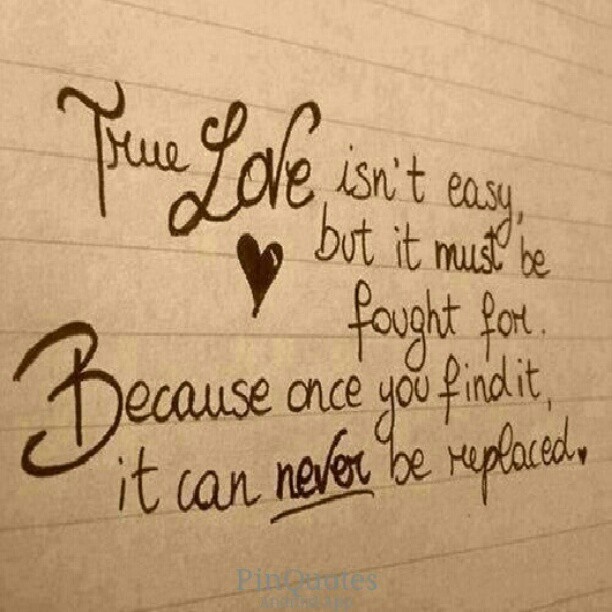 True Love isn't easy,
but it must be
fought for.
Because once you find it,
it can never be replaced.
PinQuotes